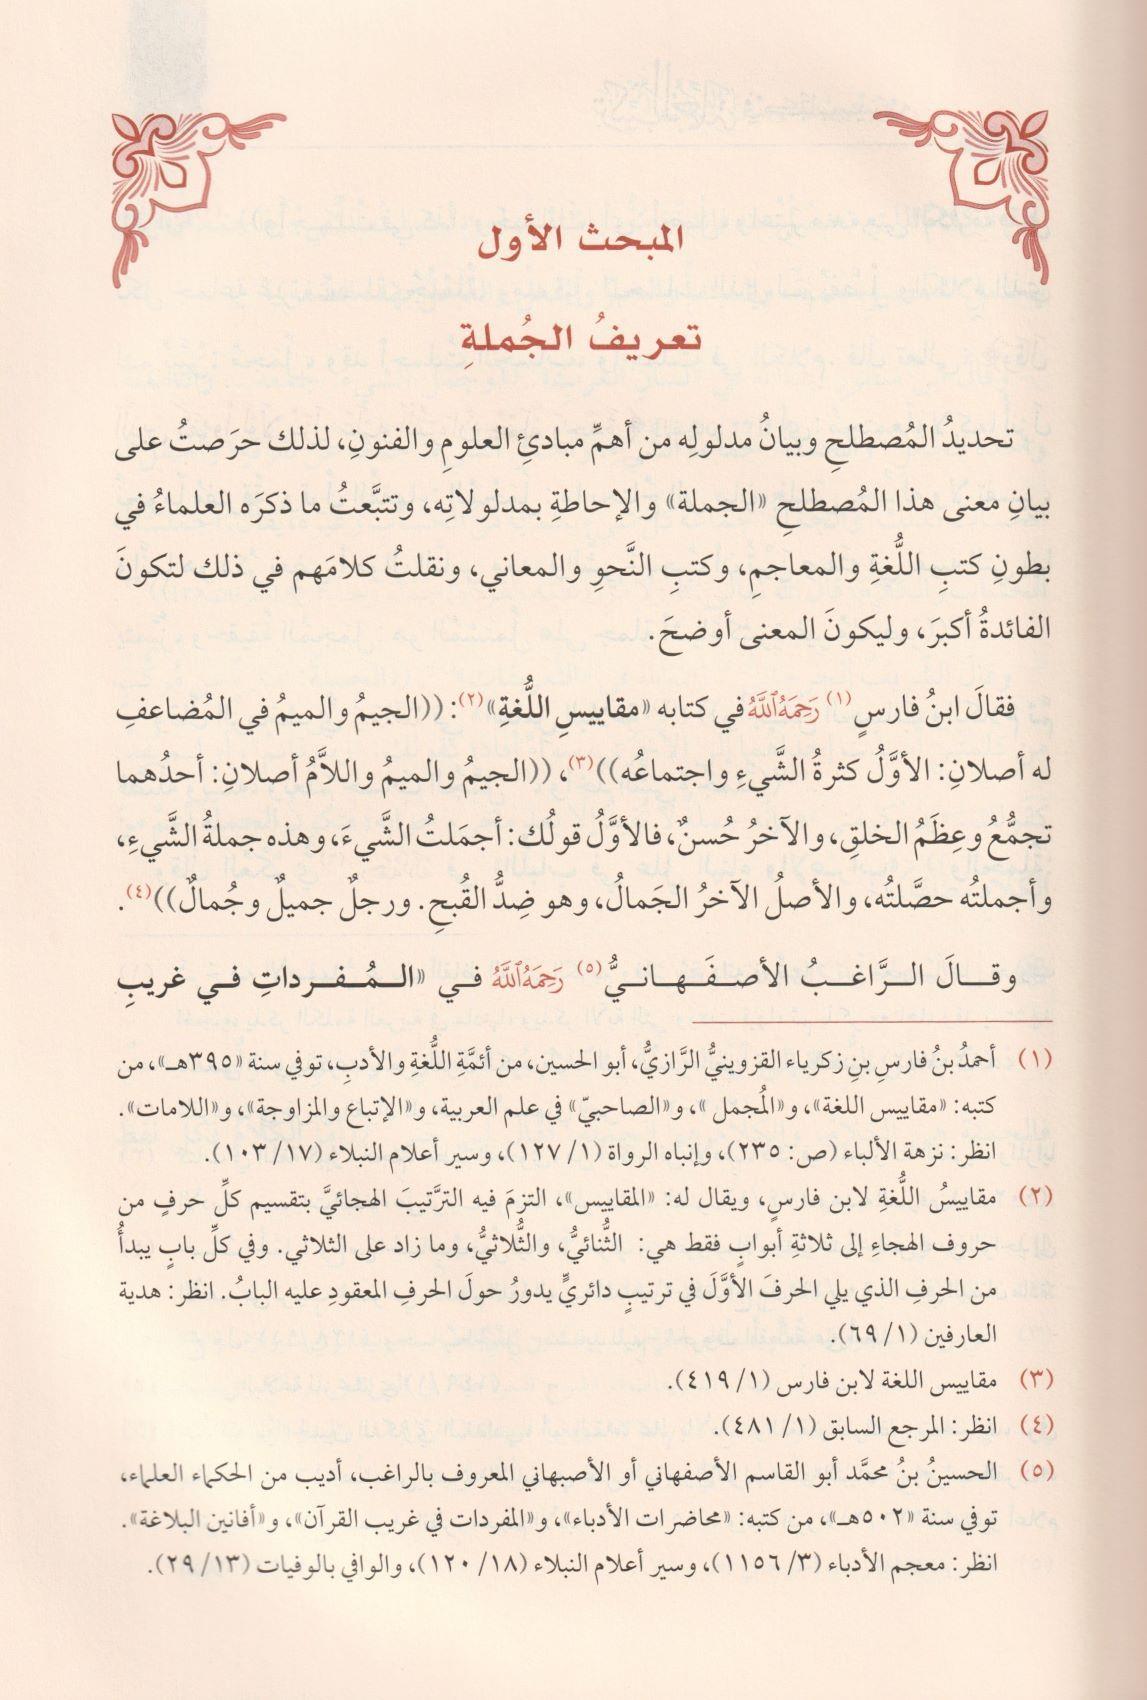 المبحث الأول
تعريفُ الجُملةِ
تحديدُ المُصطلحِ وبيانُ مدلولِه من أهمِّ مبادئِ العلومِ والفنونِ، لذلك حرَصتُ على
بيانِ معنى هذا المُصطلحِ «الجملة» والإحاطةِ بمدلولاتِه، وتتبَّعتُ ما ذكرَه العلماءُ في
بطونِ كتبِ اللُّغةِ والمعاجمِ، وكتبِ النَّحوِ والمعاني، ونقلتُ كلامَهم في ذلك لتكونَ
الفائدةُ أكبرَ، وليكونَ المعنى أوضحَ.
فقالَ ابنُ فارسٍ(١) رَحِمَهُ ٱللَّهُ في كتابه «مقاييسِ اللُّغةِ»(٢): ((الجيمُ والميمُ في المُضاعفِ
له أصلانِ: الأوَّلُ كثرةُ الشَّيءِ واجتماعُه))(٣)، ((الجيمُ والميمُ واللاَّمُ أصلانِ: أحدُهما
تجمُّعُ وعِظَمُ الخلقِ، والآخرُ حُسنٌ، فالأوَّلُ قولُك: أجمَلتُ الشَّيءَ، وهذه جملةُ الشَّيءِ،
وأجملتُه حصَّلتُه، والأصلُ الآخرُ الجَمالُ، وهو ضِدُّ القُبحِ. ورجلٌ جميلٌ وجُمالٌ))(٤).
وقالَ الرَّاغبُ الأصفَهانيُّ(٥) رَحِمَهُ ٱللَّهُ في «المُفرداتِ في غريبِ
(١) أحمدُ بنُ فارسِ بنِ زكرياء القزوينيُّ الرَّازيُّ، أبو الحسين، من أئمَّةِ اللُّغةِ والأدبِ، توفي سنة «٣٩٥هـ»، من
كتبه: «مقاييس اللغة»، و«المُجمل »، و«الصاحبيّ» في علم العربية، و«الإتباع والمزاوجة»، و«اللامات».
انظر: نزهة الألباء (ص: ٢٣٥)، وإنباه الرواة (١/ ١٢٧)، وسير أعلام النبلاء (١٧/ ١٠٣).
(٢) مقاييسُ اللُّغةِ لابن فارسٍ، ويقال له: «المقاييس»، التزمَ فيه الترَّتيبَ الهجائيَّ بتقسيم كلِّ حرفٍ من
حروف الهجاءِ إلى ثلاثةِ أبوابٍ فقط هي: الثُّنائيُّ، والثُّلاثيُّ، وما زاد على الثلاثي. وفي كلِّ بابٍ يبدأُ
من الحرفِ الذي يلي الحرفَ الأوَّلَ في ترتيبٍ دائريٍّ يدورُ حولَ الحرفِ المعقودِ عليه البابُ. انظر: هدية
العارفين (١/ ٦٩).
(٣) مقاييس اللغة لابن فارس (١/ ٤١٩).
(٤) انظر: المرجع السابق (١/ ٤٨١).
(٥) الحسينُ بنُ محمَّد أبو القاسم الأصفهاني أو الأصبهاني المعروف بالراغب، أديب من الحكماء العلماء،
توفي سنة «٥٠٢هـ»، من كتبه: «محاضرات الأدباء»، و«المفردات في غريب القرآن»، و«أفانين البلاغة».
انظر: معجم الأدباء (٣/ ١١٥٦)، وسير أعلام النبلاء (١٨/ ١٢٠)، والوافي بالوفيات (١٣/ ٢٩).